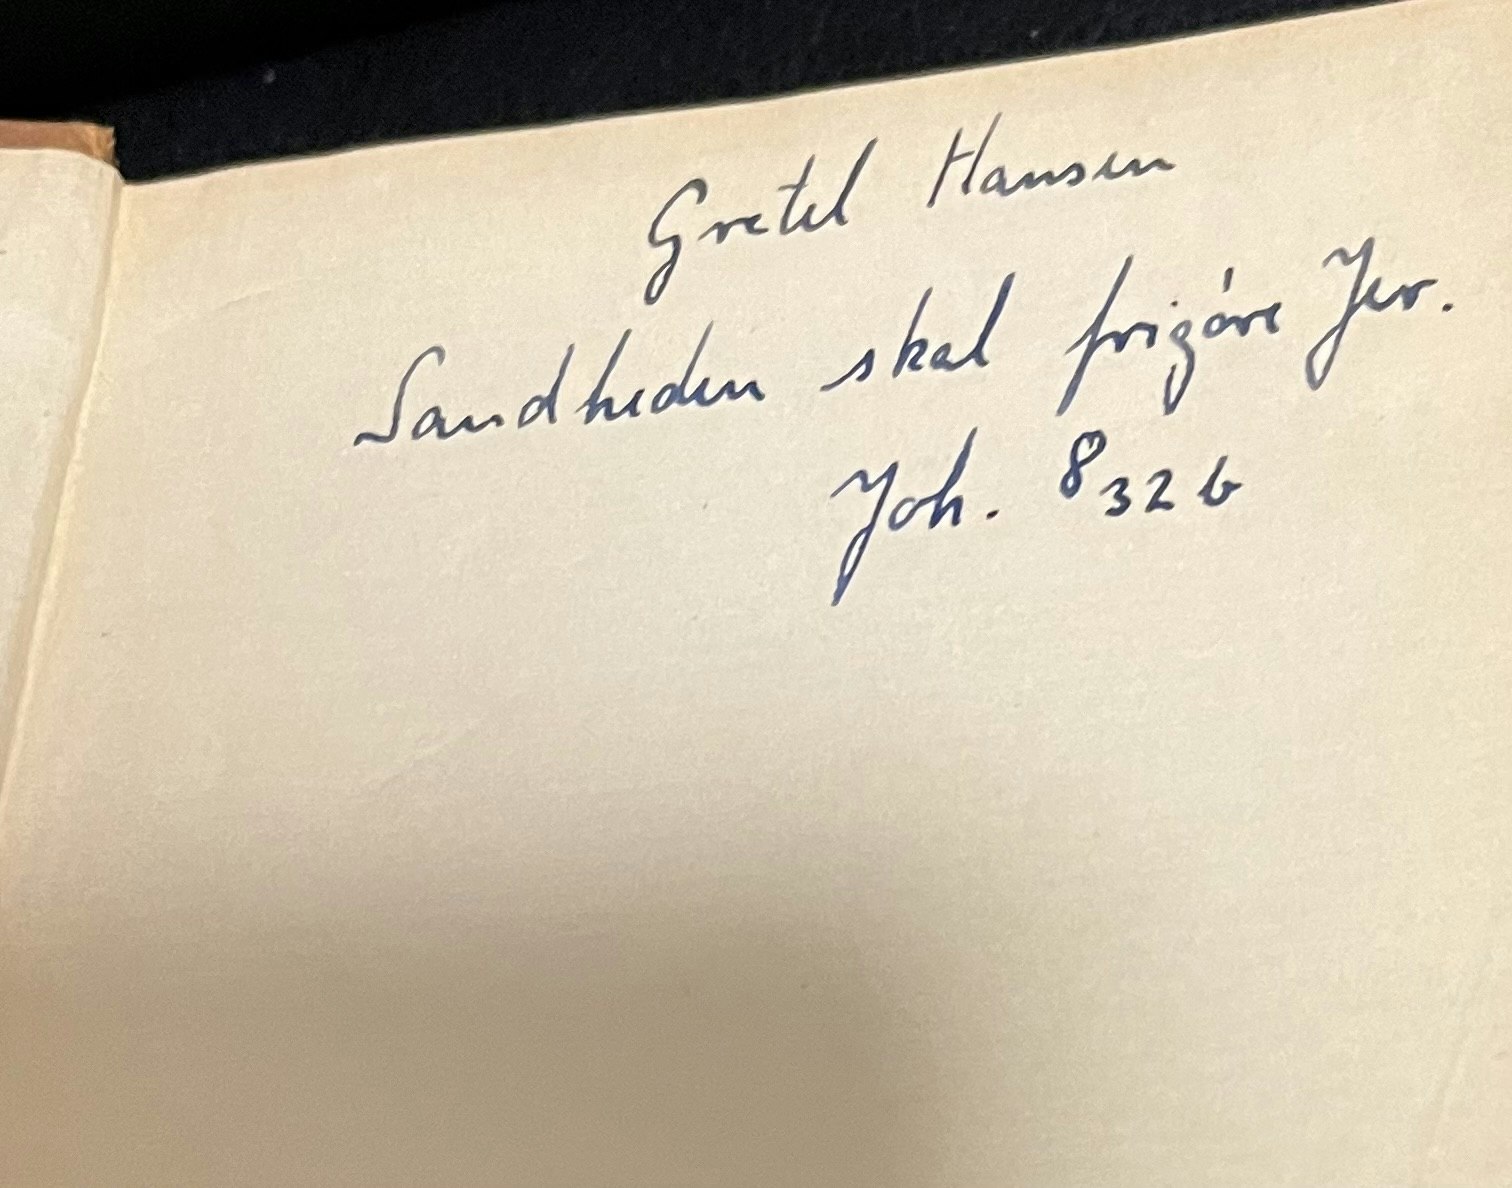 Gretel Hansen
Sandheden skal frigóre Jer.
Joh. 8 32 b